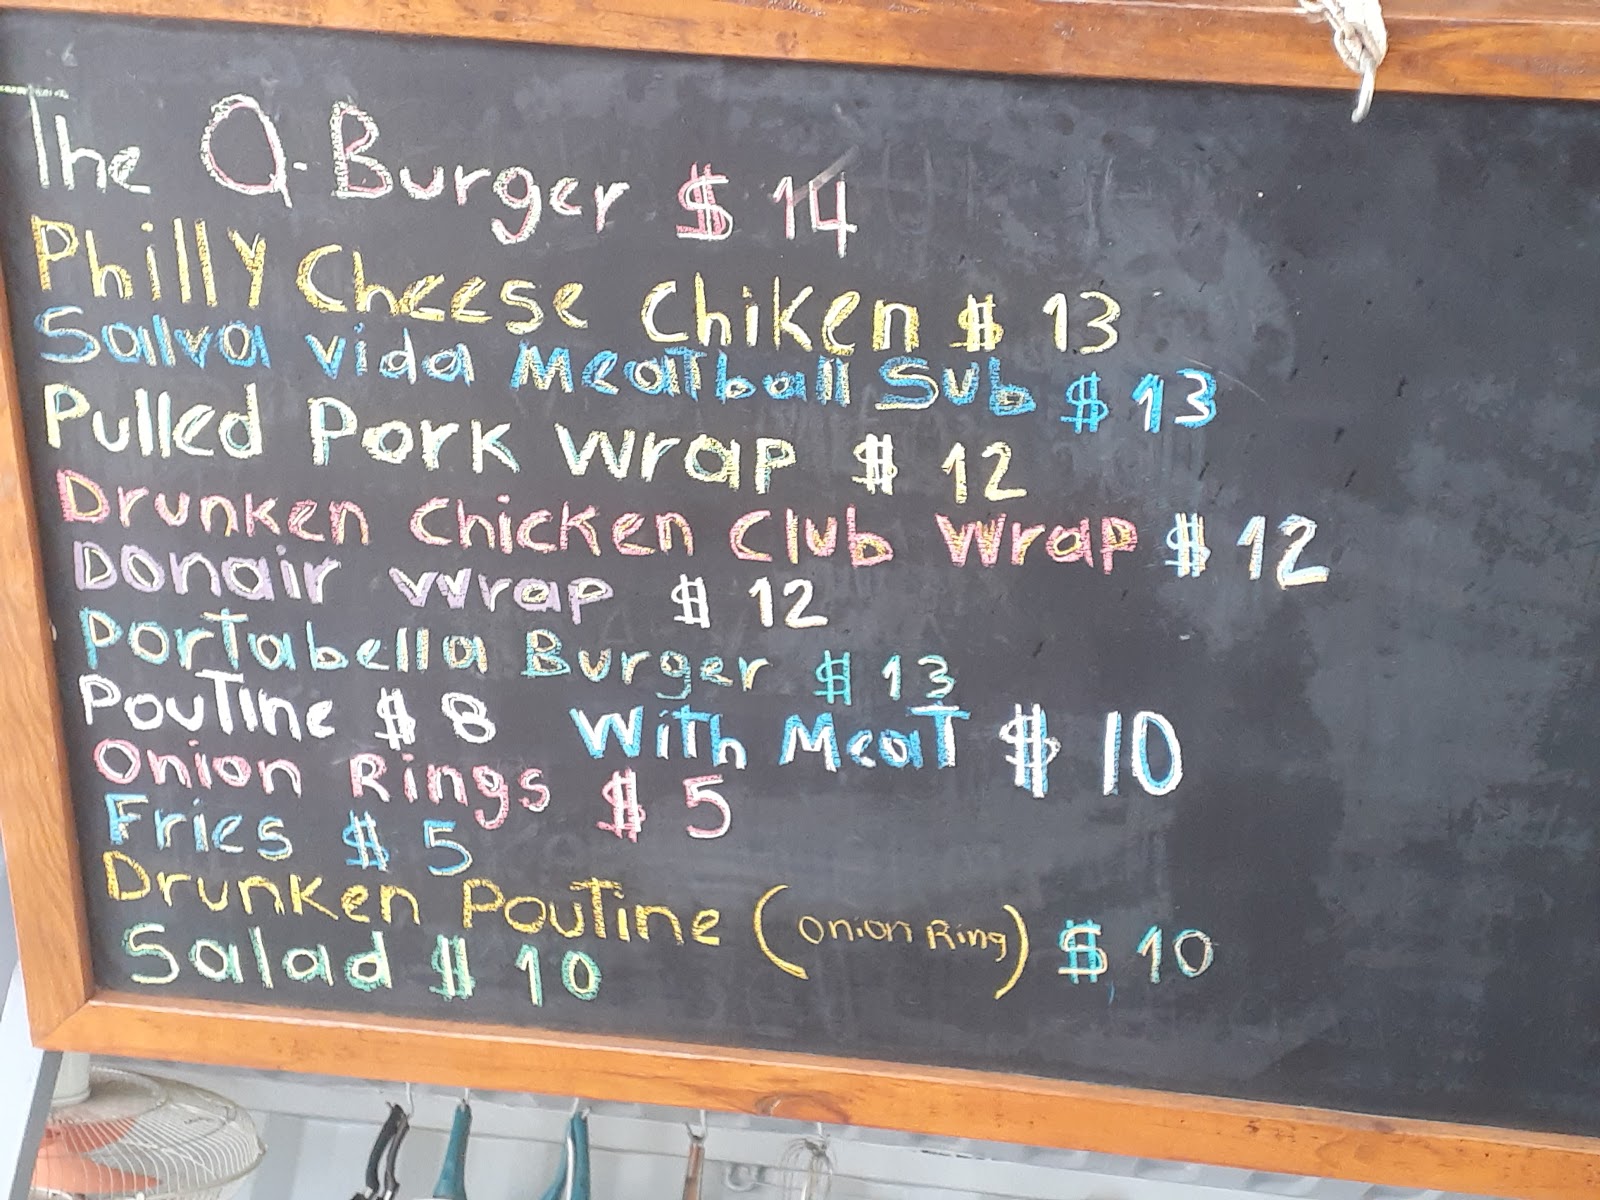 The Q-Burger $ 14
Philly Cheese Chiken $ 13
Salva vida Meatball Sub $ 13
Pulled Pork Wrap $ 12
Drunken Chicken Club Wrap $ 12
Donair Wrap $ 12
Portabella Burger $ 13
Poutine $ 8 With Meat $ 10
Onion Rings $ 5
Fries $ 5
Drunken Poutine (onion Ring) $ 10
Salad $ 10